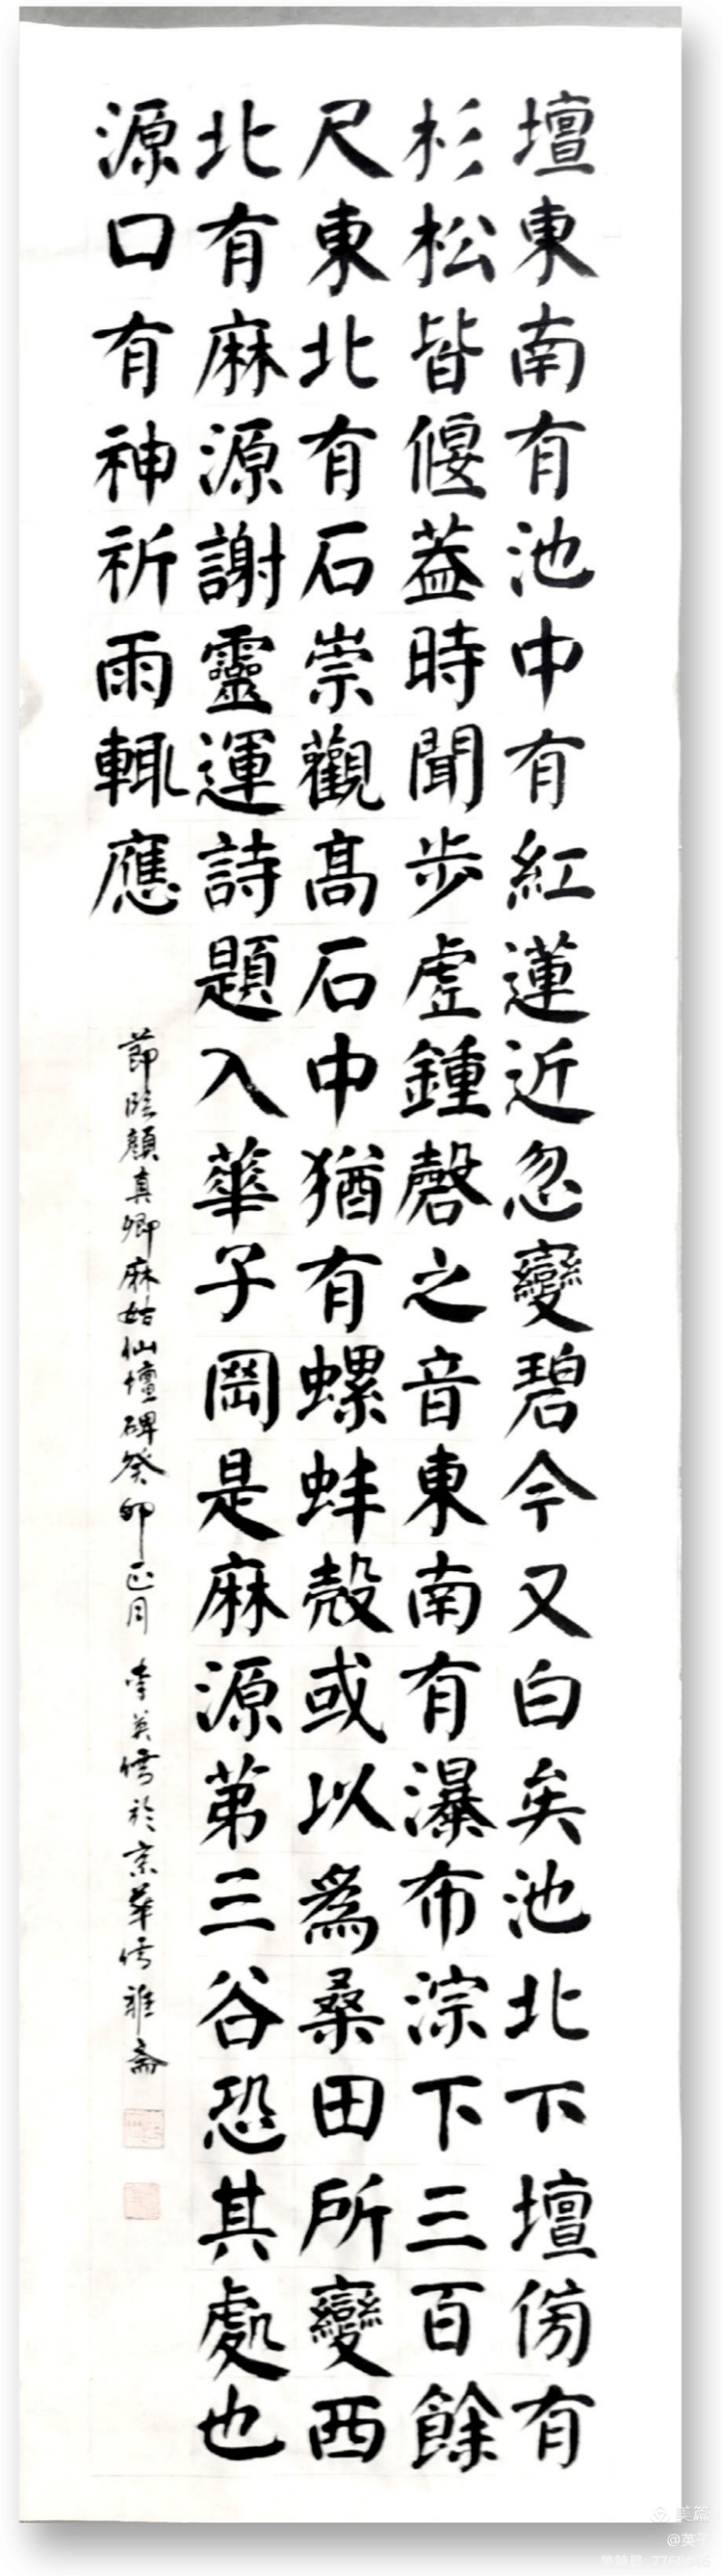 壇東南有池中有紅蓮近忽變碧今又白矣池北下壇傍有
杉松皆偃葢時聞步虛鍾磬之音東南有瀑布淙下三百餘
尺東北有石崇觀高石中猶有螺蚌殼或以為桑田所變西
北有麻源謝靈運詩題入華子岡是麻源第三谷恐其處也
源口有神祈雨輒應
節臨顏真卿麻姑仙壇碑癸卯正月 李英儒於京華儒雅齋
美篇
@英子